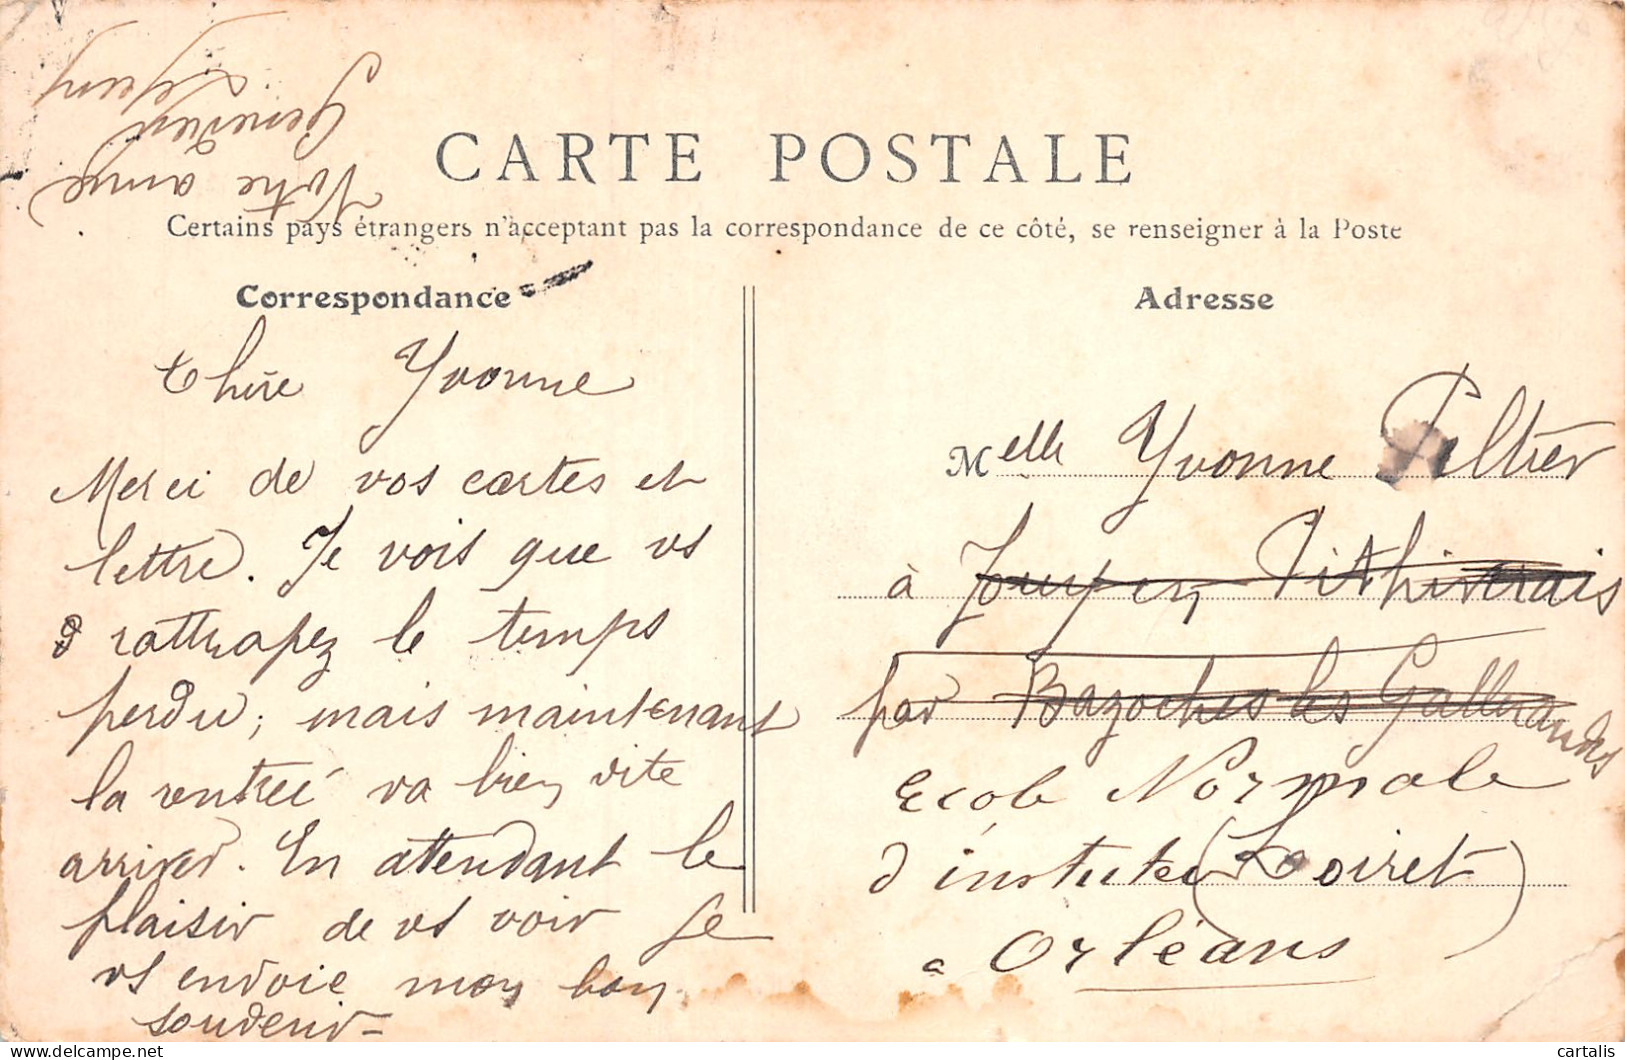 CARTE POSTALE
Certains pays étrangers n'acceptant pas la correspondance de ce côté, se renseigner à la Poste
Correspondance
Chère Yvonne
Merci de vos cartes et
lettre. Je vois que vs
rattrapez le temps
perdu; mais maintenant
la rentrée va bien vite
arriver. En attendant le
plaisir de vs voir je
vs envoie mon bon
souvenir-
Votre amie
Geneviève
Adresse
Melle Yvonne Peltier
à Jouy en Pithiverais
par Bazoches les Gallerandes
Ecole Normale
d'institutei (Loiret)
a Orléans
cartalis
delcampe.net